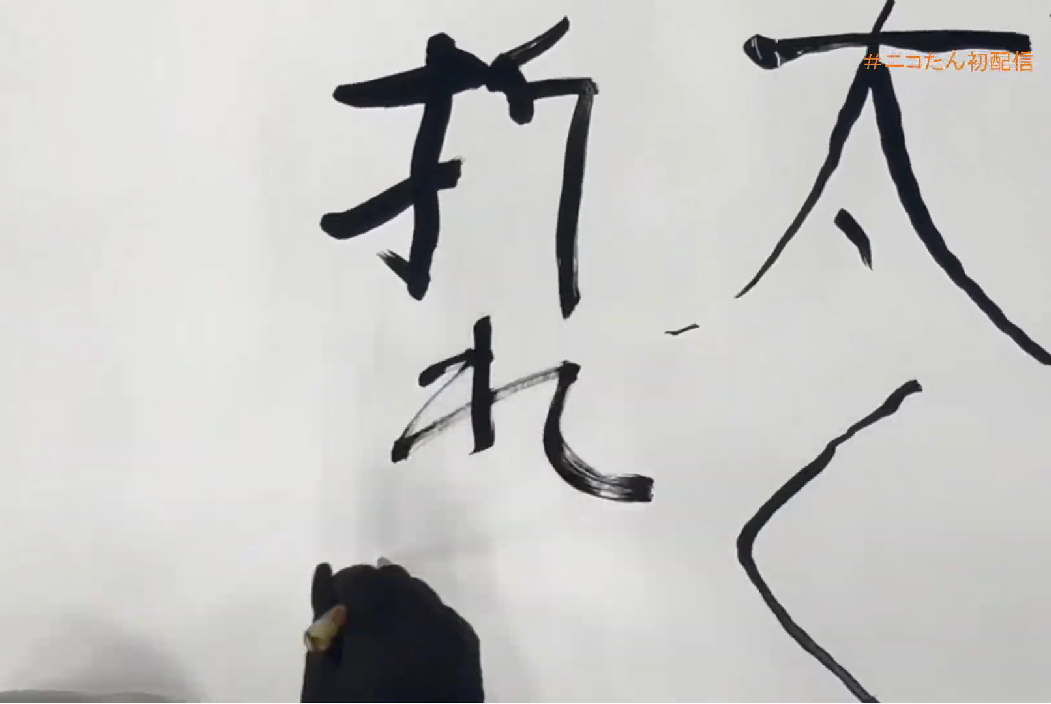 #ニコたん初配信
太く
折れ